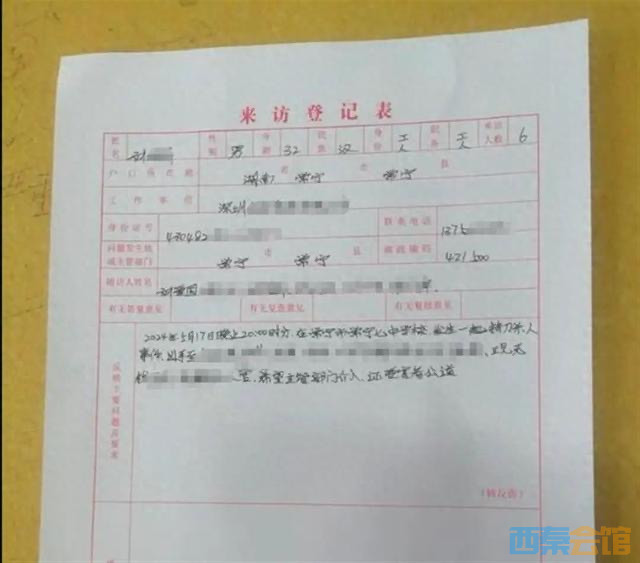 来访登记表
姓名 刘 性别 男 年龄 32 民族 汉 身份 工人 职务 工人 来访人数 6
户口所在地 湖南 省 常宁 市 常宁 县
工作单位 深圳
身份证号 430482 联系电话 1375
问题发生地或主管部门 常宁 市 常宁 县 邮政编码 421500
随访人姓名 刘爱国
有无答复意见 有无复查意见 有无复核意见
反映主要问题及要求
2024年5月17日晚上20:00时分,在常宁市常宁 中学校 发生一起持刀杀人
事件,凶手至
希望主管部门介入,还受害者公道
(转反面)
西秦会馆